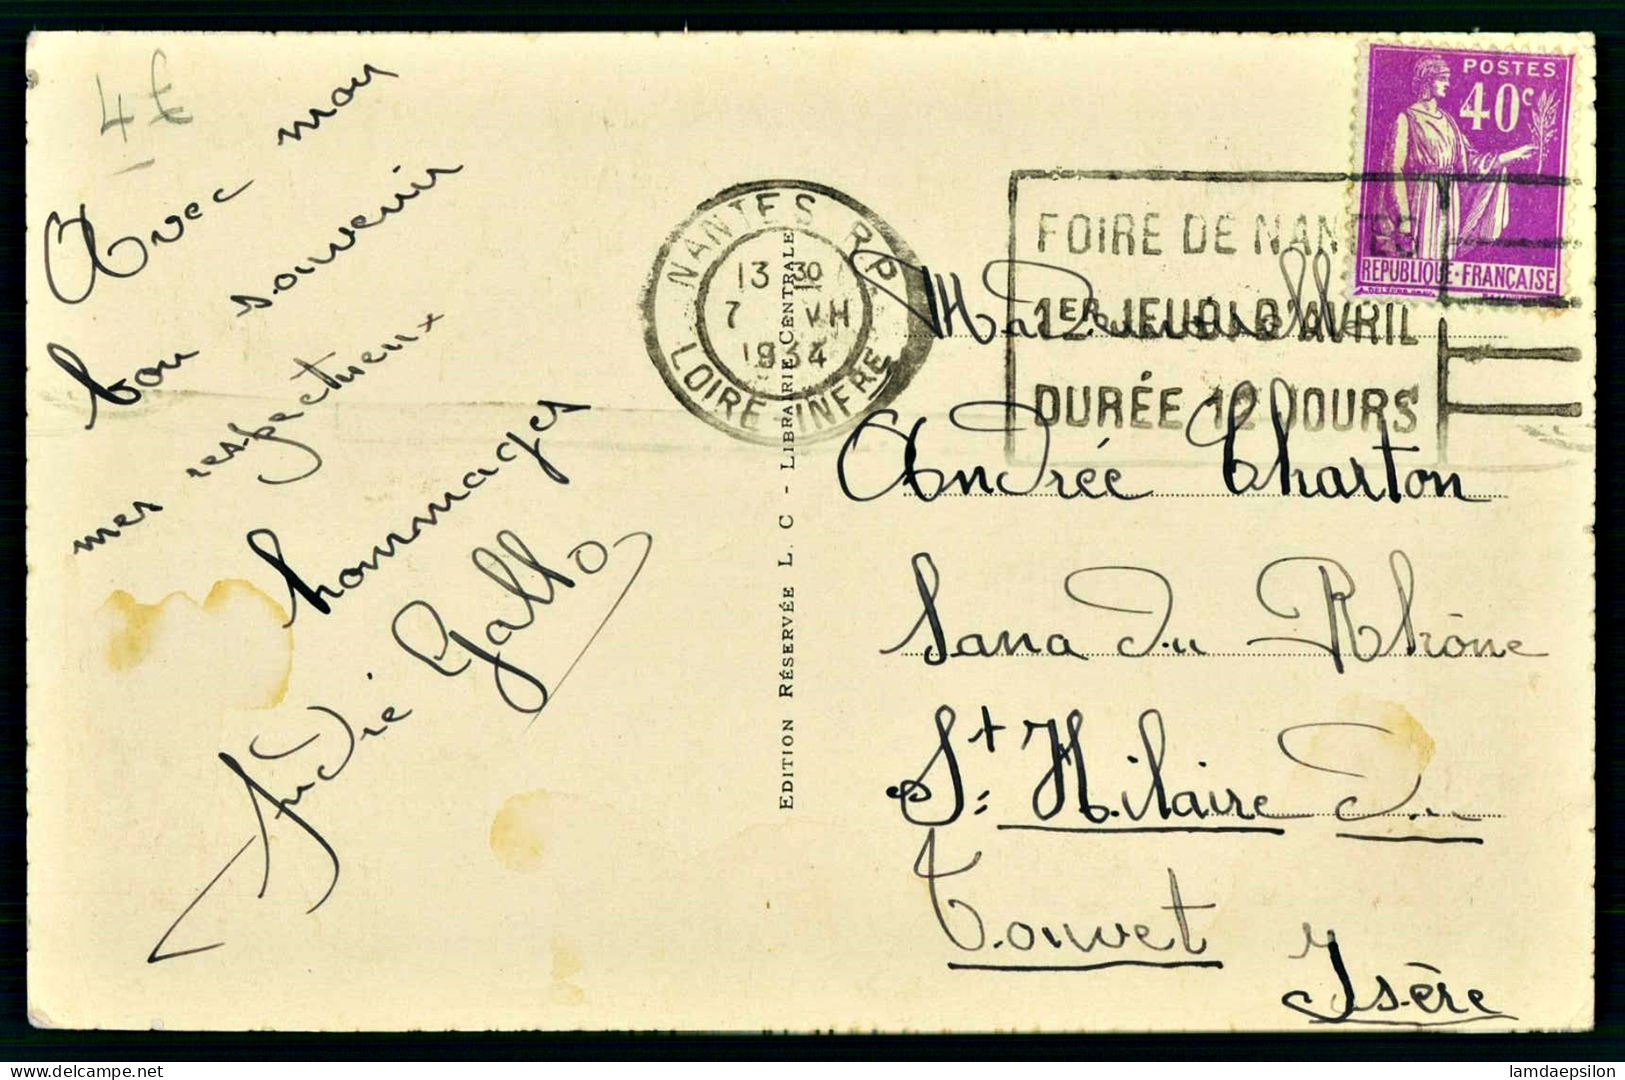 4 £
Avec mon
bon souvenir
mes respectueux
hommages
André Gallo
EDITION RÉSERVÉE L. C - LIBRAIRIE CENTRALE
NANTES R.P.
13 30
7 VII
1934
LOIRE INFRE
FOIRE DE NANTES
1ER JEUDI D'AVRIL
DURÉE 12 JOURS
POSTES
40c
REPUBLIQUE·FRANÇAISE
Mademoiselle
Andrée Charton
Sana du Rhône
St: Hilaire du
Touvet
Isère
delcampe.net
lamdaepsilon